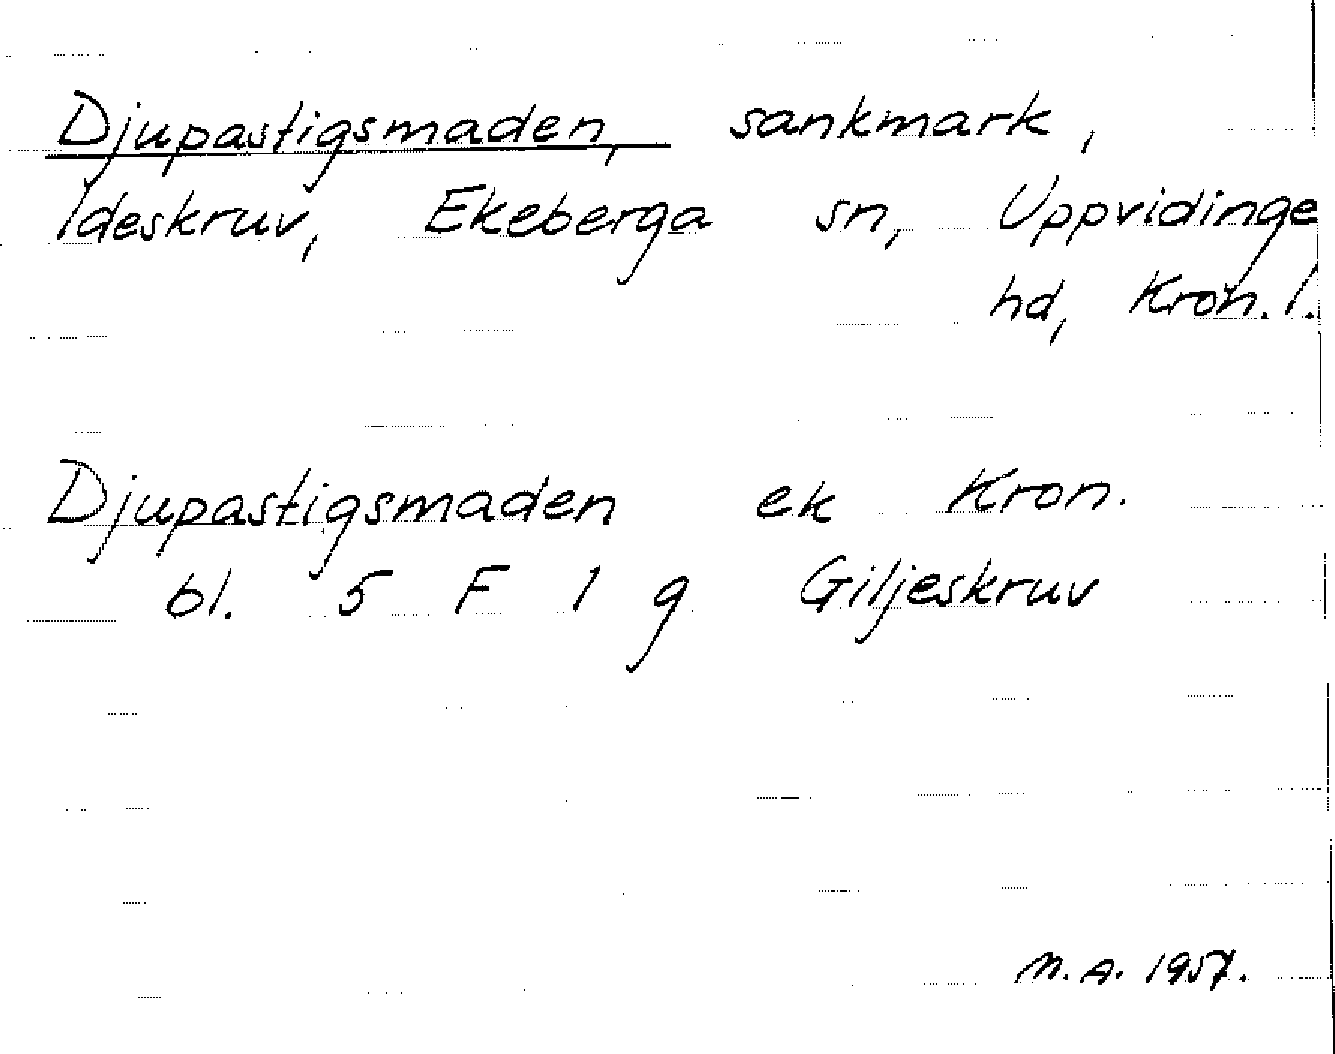 Djupastigsmaden, sankmark,
Ideskruv, Ekeberga sn, Uppvidinge
hd, Kron. l.
Djupastigsmaden ek Kron.
bl. 5 F 1 g Giljeskruv
M.A. 1957.